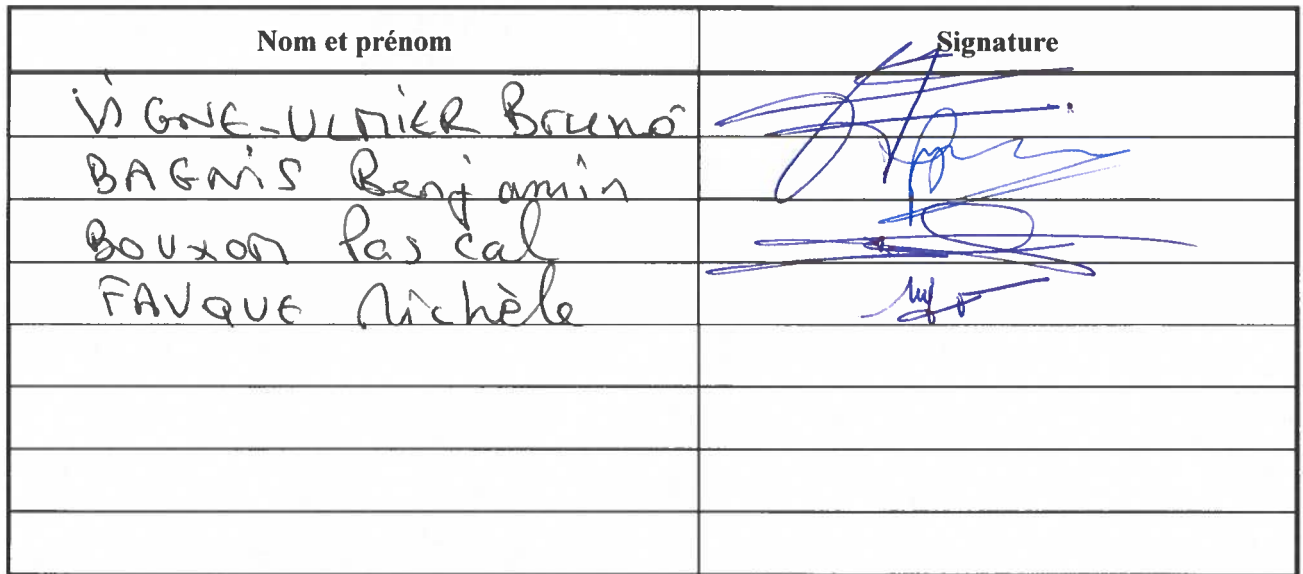 Nom et prénom Signature
VIGNE-ULMIER Bruno
BAGNIS Benjamin
BOUXOM Pascal
FAUQUE Michèle